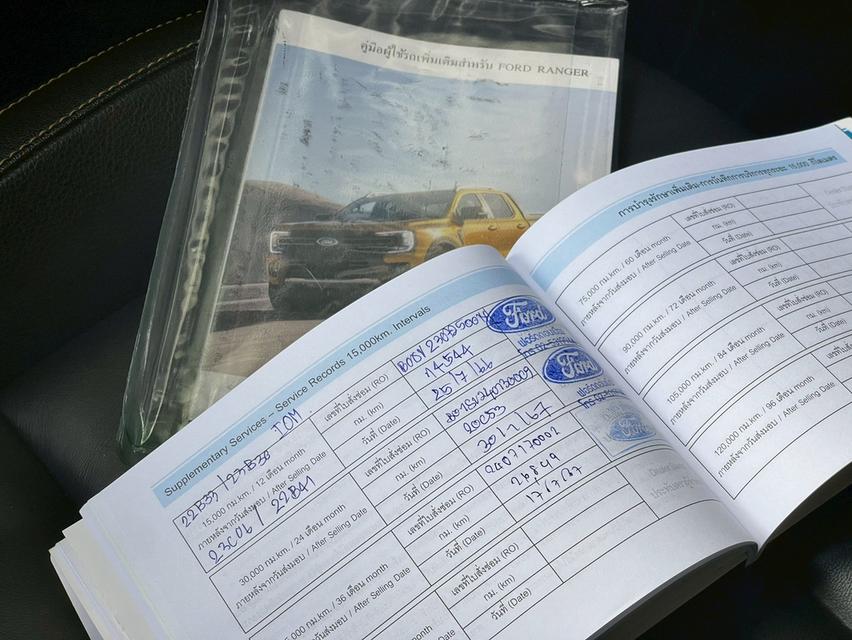 คู่มือผู้ใช้รถเพิ่มเติมสำหรับ FORD RANGER
Supplementary Services – Service Records 15,000km. Intervals
22B33 / 23B33 TOM
15,000 กม.km. / 12 เดือน month
ภายหลังจากวันส่งมอบ / After Selling Date
23C06 / 22B41
เลขที่ใบสั่งซ่อม (RO)
กม. (km) 14544
วันที่ (Date) 25/7/66
Ford
30,000 กม.km. / 24 เดือน month
ภายหลังจากวันส่งมอบ / After Selling Date
เลขที่ใบสั่งซ่อม (RO)
กม. (km) 20053
วันที่ (Date) 30/1/67
Ford
36 เดือน month
ภายหลังจากวันส่งมอบ / After Selling Date
เลขที่ใบสั่งซ่อม (RO) 2407170002
กม. (km) 26849
วันที่ (Date) 17/7/67
เลขที่ใบสั่งซ่อม (RO)
กม. (km)
วันที่ (Date)
การบำรุงรักษาเพิ่มเติม-การบันทึกการบริการทุกระยะ 15,000 กิโลเมตร
75,000 กม.km. / 60 เดือน month
ภายหลังจากวันส่งมอบ / After Selling Date
เลขที่ใบสั่งซ่อม (RO)
กม. (km)
วันที่ (Date)
90,000 กม.km. / 72 เดือน month
ภายหลังจากวันส่งมอบ / After Selling Date
เลขที่ใบสั่งซ่อม (RO)
กม. (km)
วันที่ (Date)
105,000 กม.km. / 84 เดือน month
ภายหลังจากวันส่งมอบ / After Selling Date
เลขที่ใบสั่งซ่อม (RO)
กม. (km)
วันที่ (Date)
120,000 กม.km. / 96 เดือน month
ภายหลังจากวันส่งมอบ / After Selling Date